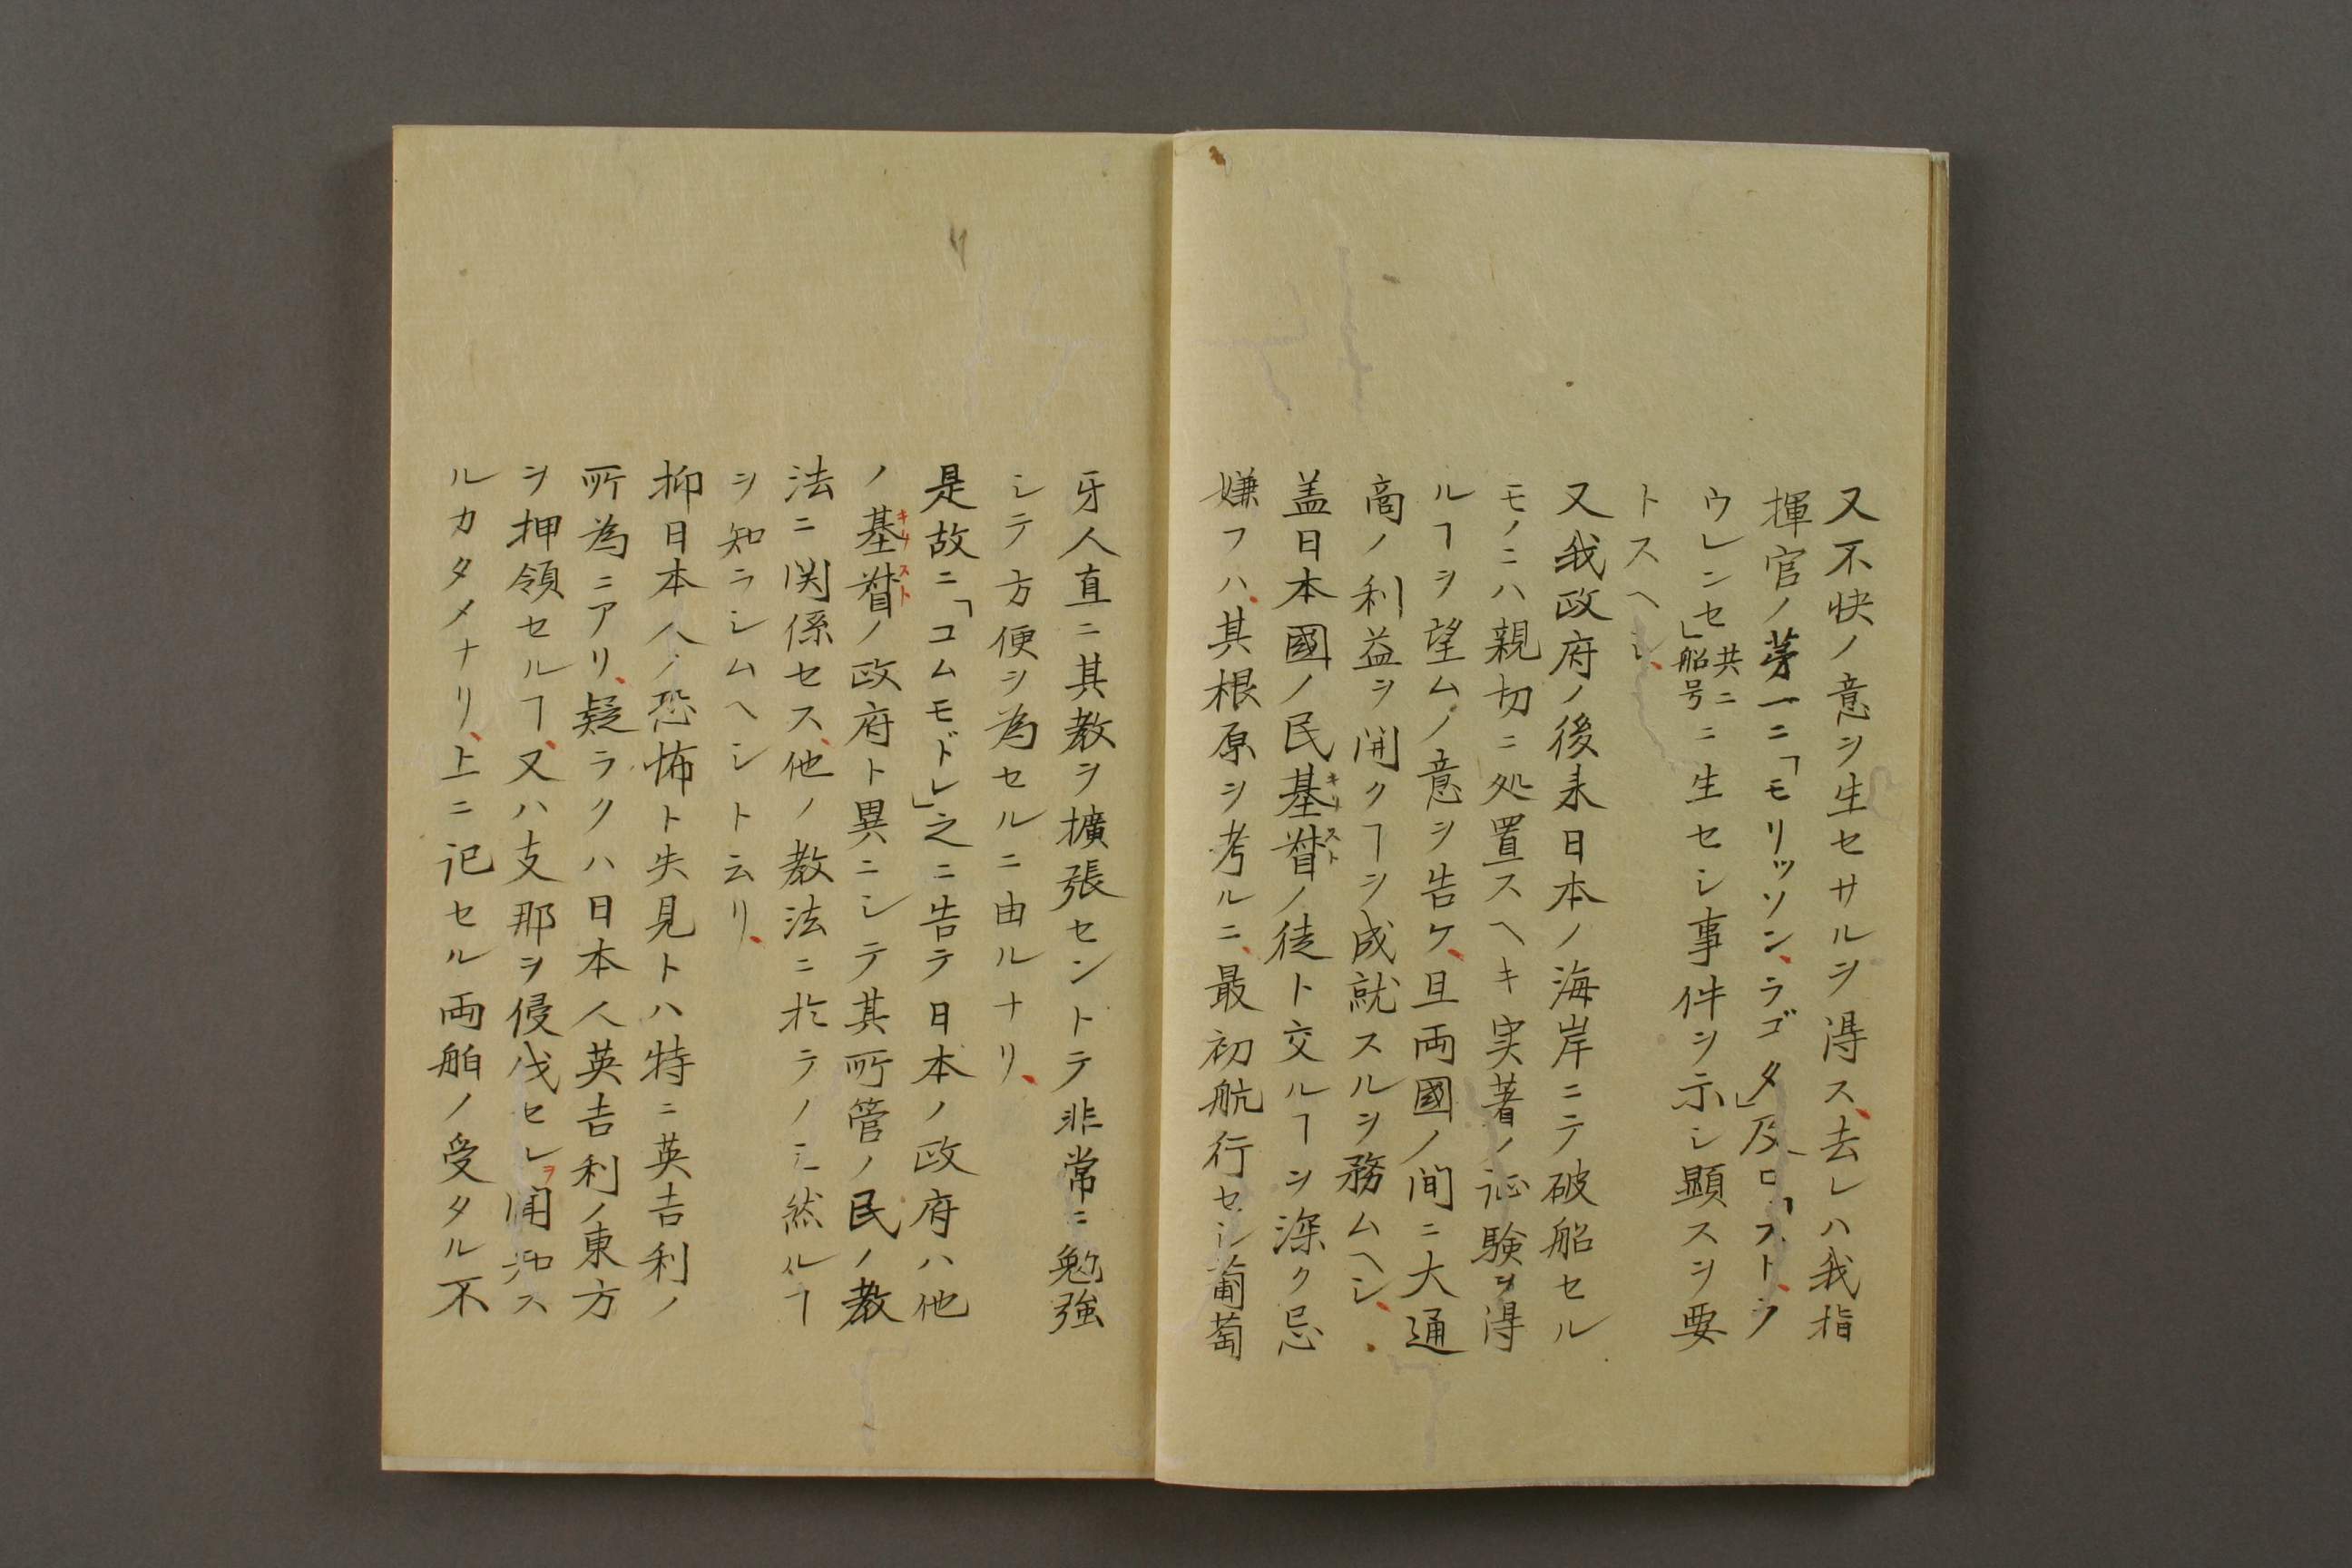 又不快ノ意ヲ生セサルヲ得ス、去レハ我指
揮官ノ䓁一ニ「モリッソン、ラゴタ」及ヒ「フスト、ラ
ウレンセ」共ニ船号ニ生セシ事件ヲ示シ顕スヲ要
トスヘシ、
又我政府ノ後来日本ノ海岸ニテ破船セル
モノニハ親切ニ処置スヘキ実著ノ証験ヲ得
ルヿヲ望ムノ意ヲ告ケ、且両國ノ间ニ大通
商ノ利益ヲ開クヿヲ成就スルヲ務ムヘシ、
盖日本國ノ民基督キリストノ徒ト交ルヿヲ深ク忌
嫌フハ、其根原ヲ考ルニ、最初航行セシ葡萄
牙人直ニ其教ヲ擴張セントテ非常ニ勉強
シテ方便ヲ為セルニ由ルナリ、
是故ニ「コムモドレ」之ニ告テ日本ノ政府ハ他
ノ基督キリストノ政府ト異ニシテ其所管ノ民ノ教
法ニ関係セス、他ノ教法ニ於テノミ然ルヿ
ヲ知ラシムヘシト云リ、
抑日本人ノ恐怖ト失見トハ特ニ英吉利ノ
所為ニアリ、疑ラクハ日本人英吉利ノ東方
ヲ押領セルヿ、又ハ支那ヲ侵伐セシヲ聞知ス
ルカタメナリ、上ニ記セル両舶ノ受タル不